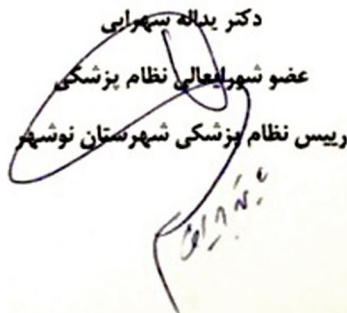 دکتر یداله سهرابی
عضو شورایعالی نظام پزشکی
رییس نظام پزشکی شهرستان نوشهر